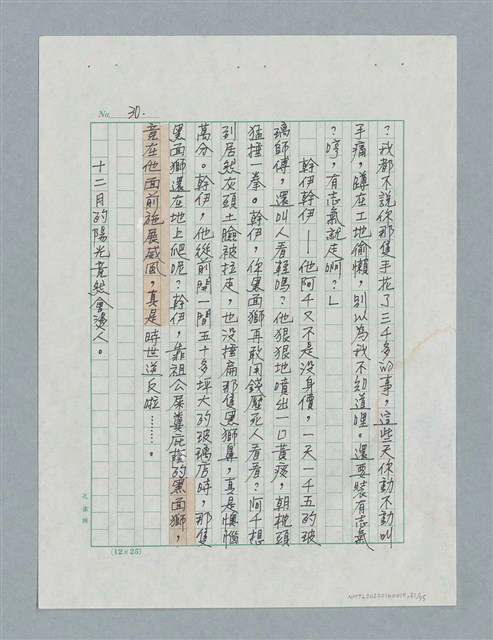 No. 30.
？我都不說你那隻手花了三千多的事，這些天你動不動叫
手痛，蹲在工地偷懶，別以為我不知道哩。還要裝有志氣
？哼，有志氣就走啊？」
幹伊幹伊——他阿千又不是沒身價，一天一千五的玻
璃師傅，還叫人看輕嗎？他狠狠地噴出一口黃痰，朝枕頭
猛捶一拳。幹伊，你黑面獅再敢用錢壓死人看看？阿千想
到居然灰頭土臉被拉走，也沒捶扁那隻黑獅鼻，真是懊惱
萬分。幹伊，他從前開一間五十多坪大的玻璃店時，那隻
黑面獅還在地上爬呢？幹伊，靠祖公屎糞庇蔭的黑面獅，
竟在他面前施展威風，真是時世造反啦……。
十二月的陽光竟然會燙人。
孔雀牌
(12×25)